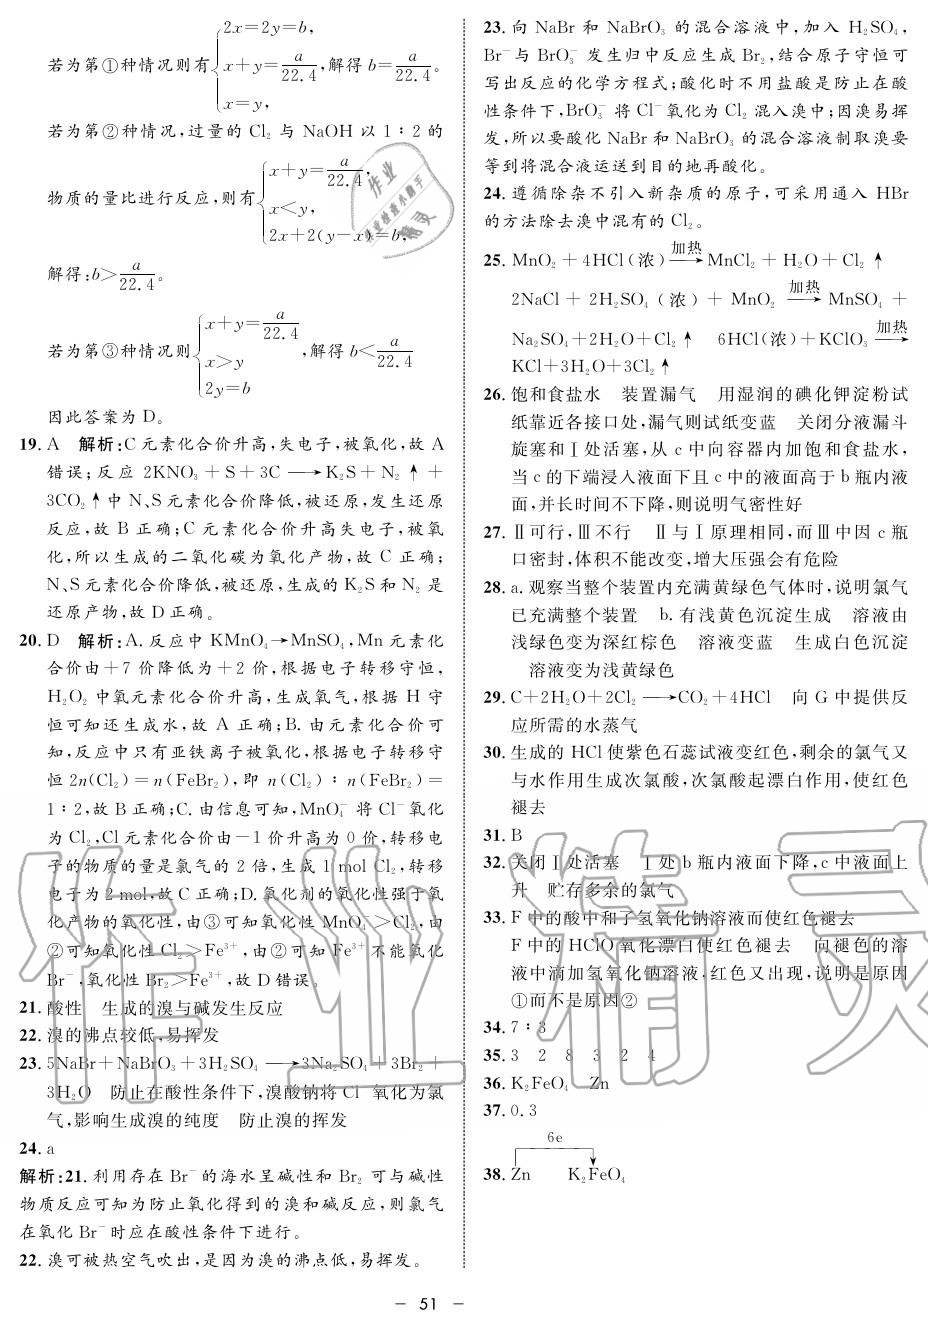 若为第①种情况则有{2x=2y=b, x+y=a/22.4, x=y, 解得 b=a/22.4。
若为第②种情况,过量的 Cl₂ 与 NaOH 以 1∶2 的
物质的量比进行反应,则有{x+y=a/22.4, x<y, 2x+2(y-x)=b,
解得:b>a/22.4。
若为第③种情况则{x+y=a/22.4 x>y 2y=b ,解得 b<a/22.4
因此答案为 D。
19. A 解析:C 元素化合价升高,失电子,被氧化,故 A
错误;反应 2KNO₃+S+3C ⟶K₂S+N₂↑+
3CO₂↑中 N、S 元素化合价降低,被还原,发生还原
反应,故 B 正确;C 元素化合价升高失电子,被氧
化,所以生成的二氧化碳为氧化产物,故 C 正确;
N、S 元素化合价降低,被还原,生成的 K₂S 和 N₂ 是
还原产物,故 D 正确。
20. D 解析:A. 反应中 KMnO₄→MnSO₄,Mn 元素化
合价由+7 价降低为+2 价,根据电子转移守恒,
H₂O₂ 中氧元素化合价升高,生成氧气,根据 H 守
恒可知还生成水,故 A 正确;B. 由元素化合价可
知,反应中只有亚铁离子被氧化,根据电子转移守
恒 2n(Cl₂)=n(FeBr₂),即 n(Cl₂)∶n(FeBr₂)=
1∶2,故 B 正确;C. 由信息可知,MnO₄⁻ 将 Cl⁻氧化
为 Cl₂,Cl 元素化合价由-1 价升高为 0 价,转移电
子的物质的量是氯气的 2 倍,生成 1 mol Cl₂,转移
电子为 2 mol,故 C 正确;D. 氧化剂的氧化性强于氧
化产物的氧化性,由③可知氧化性 MnO₄⁻>Cl₂,由
②可知氧化性 Cl₂>Fe³⁺,由②可知 Fe³⁺不能氧化
Br⁻,氧化性 Br₂>Fe³⁺,故 D 错误。
21. 酸性 生成的溴与碱发生反应
22. 溴的沸点较低,易挥发
23. 5NaBr+NaBrO₃+3H₂SO₄ ⟶3Na₂SO₄+3Br₂+
3H₂O 防止在酸性条件下,溴酸钠将 Cl⁻氧化为氯
气,影响生成溴的纯度 防止溴的挥发
24. a
解析:21. 利用存在 Br⁻的海水呈碱性和 Br₂ 可与碱性
物质反应可知为防止氧化得到的溴和碱反应,则氯气
在氧化 Br⁻时应在酸性条件下进行。
22. 溴可被热空气吹出,是因为溴的沸点低,易挥发。
23. 向 NaBr 和 NaBrO₃ 的混合溶液中,加入 H₂SO₄,
Br⁻与 BrO₃⁻ 发生归中反应生成 Br₂,结合原子守恒可
写出反应的化学方程式;酸化时不用盐酸是防止在酸
性条件下,BrO₃⁻ 将 Cl⁻氧化为 Cl₂ 混入溴中;因溴易挥
发,所以要酸化 NaBr 和 NaBrO₃ 的混合溶液制取溴要
等到将混合液运送到目的地再酸化。
24. 遵循除杂不引入新杂质的原子,可采用通入 HBr
的方法除去溴中混有的 Cl₂。
25. MnO₂+4HCl(浓) 加热⟶ MnCl₂+H₂O+Cl₂↑
2NaCl+2H₂SO₄(浓)+MnO₂ 加热⟶ MnSO₄+
Na₂SO₄+2H₂O+Cl₂↑ 6HCl(浓)+KClO₃ 加热⟶
KCl+3H₂O+3Cl₂↑
26. 饱和食盐水 装置漏气 用湿润的碘化钾淀粉试
纸靠近各接口处,漏气则试纸变蓝 关闭分液漏斗
旋塞和Ⅰ处活塞,从 c 中向容器内加饱和食盐水,
当 c 的下端浸入液面下且 c 中的液面高于 b 瓶内液
面,并长时间不下降,则说明气密性好
27. Ⅱ可行,Ⅲ不行 Ⅱ与Ⅰ原理相同,而Ⅲ中因 c 瓶
口密封,体积不能改变,增大压强会有危险
28. a. 观察当整个装置内充满黄绿色气体时,说明氯气
已充满整个装置 b. 有浅黄色沉淀生成 溶液由
浅绿色变为深红棕色 溶液变蓝 生成白色沉淀
溶液变为浅黄绿色
29. C+2H₂O+2Cl₂ ⟶CO₂+4HCl 向 G 中提供反
应所需的水蒸气
30. 生成的 HCl 使紫色石蕊试液变红色,剩余的氯气又
与水作用生成次氯酸,次氯酸起漂白作用,使红色
褪去
31. B
32. 关闭Ⅰ处活塞 Ⅰ处 b 瓶内液面下降,c 中液面上
升 贮存多余的氯气
33. F 中的酸中和了氢氧化钠溶液而使红色褪去
F 中的 HClO 氧化漂白使红色褪去 向褪色的溶
液中滴加氢氧化钠溶液,红色又出现,说明是原因
①而不是原因②
34. 7∶3
35. 3 2 8 3 2 4
36. K₂FeO₄ Zn
37. 0.3
6e
38. Zn K₂FeO₄
– 51 –
作业精灵
作业
作业检查小助手
精灵